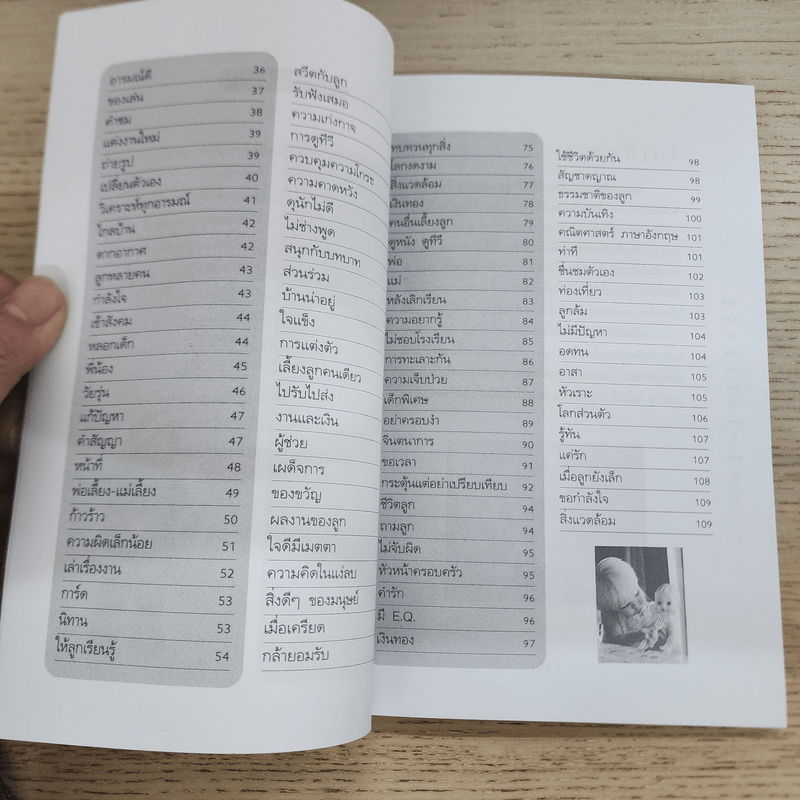 อารมณ์ดี 36
ของเล่น 37
คำชม 38
แต่งงานใหม่ 39
ถ่ายรูป 39
เปลี่ยนตัวเอง 40
วิเคราะห์ทุกอารมณ์ 41
ไกลบ้าน 42
ตากอากาศ 42
ลูกหลายคน 43
กำลังใจ 43
เข้าสังคม 44
หลอกเด็ก 44
พี่น้อง 45
วัยรุ่น 46
แก้ปัญหา 47
คำสัญญา 47
หน้าที่ 48
พ่อเลี้ยง-แม่เลี้ยง 49
ก้าวร้าว 50
ความผิดเล็กน้อย 51
เล่าเรื่องงาน 52
การ์ด 53
นิทาน 53
ให้ลูกเรียนรู้ 54
สวีตกับลูก
รับฟังเสมอ
ความเก่งกาจ
การดูทีวี
ควบคุมความโกรธ
ความคาดหวัง
ดุนักไม่ดี
ไม่ช่างพูด
สนุกกับบทบาท
ส่วนร่วม
บ้านน่าอยู่
ใจแข็ง
การแต่งตัว
เลี้ยงลูกคนเดียว
ไปรับไปส่ง
งานและเงิน
ผู้ช่วย
เผด็จการ
ของขวัญ
ผลงานของลูก
ใจดีมีเมตตา
ความคิดในแง่ลบ
สิ่งดีๆ ของมนุษย์
เมื่อเครียด
กล้ายอมรับ
ทบทวนทุกสิ่ง 75
โลกงดงาม 76
สิ่งแวดล้อม 77
เงินทอง 78
คนอื่นเลี้ยงลูก 79
ดูหนัง ดูทีวี 80
พ่อ 81
แม่ 82
หลังเลิกเรียน 83
ความอยากรู้ 84
ไม่ชอบโรงเรียน 85
การทะเลาะกัน 86
ความเจ็บป่วย 87
เด็กพิเศษ 88
อย่าครอบงำ 89
จินตนาการ 90
ขอเวลา 91
กระตุ้นแต่อย่าเปรียบเทียบ 92
ชีวิตลูก 94
ถามลูก 94
ไม่จับผิด 95
หัวหน้าครอบครัว 95
คำรัก 96
มี E.Q. 96
เงินทอง 97
ใช้ชีวิตด้วยกัน 98
สัญชาตญาณ 98
ธรรมชาติของลูก 99
ความบันเทิง 100
คณิตศาสตร์ ภาษาอังกฤษ 101
ท่าที 101
ชื่นชมตัวเอง 102
ท่องเที่ยว 103
ลูกล้ม 103
ไม่มีปัญหา 104
อดทน 104
อาสา 105
หัวเราะ 105
โลกส่วนตัว 106
รู้ทัน 107
แค่รัก 107
เมื่อลูกยังเล็ก 108
ขอกำลังใจ 109
สิ่งแวดล้อม 109